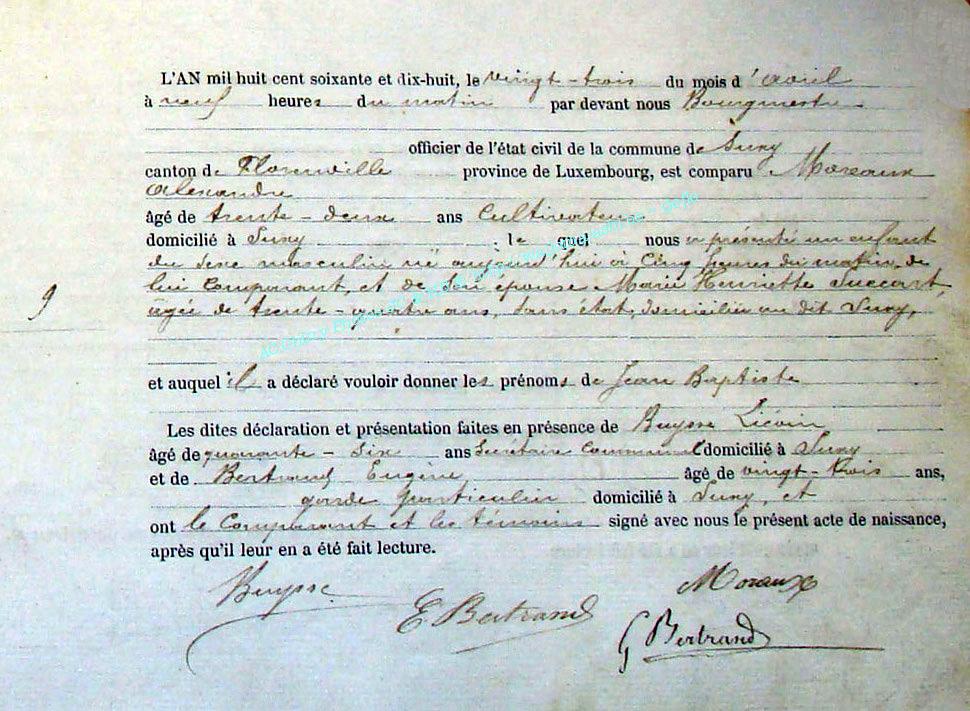 L'AN mil huit cent soixante et dix-huit, le vingt-trois du mois d'avril
à neuf heures du matin par devant nous Bourgmestre
officier de l'état civil de la commune de Suxy
canton de Florenville province de Luxembourg, est comparu Moraux
Alexandre
âgé de trente-deux ans Cultivateur
domicilié à Suxy ; le quel nous a présenté un enfant
du sexe masculin né aujourd'hui à Cinq heures du matin, de
lui Comparant, et de son épouse Marie Henriette Succart,
âgée de trente-quatre ans, sans état, domiciliée au dit Suxy,
9
et auquel il a déclaré vouloir donner les prénoms de Jean Baptiste
Les dites déclaration et présentation faites en présence de Buysse Liévin
âgé de quarante-six ans Secrétaire Communal domicilié à Suxy
et de Bertrand Eugène âgé de vingt-trois ans,
garde particulier domicilié à Suxy, et
ont le Comparant et les témoins signé avec nous le présent acte de naissance,
après qu'il leur en a été fait lecture.
Buysse E Bertrand Moraux
G Bertrand